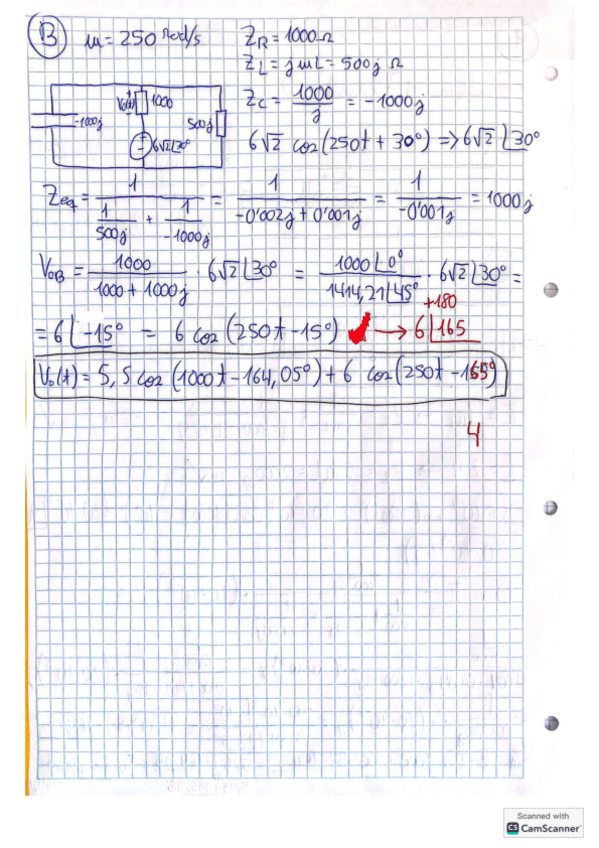 B ω = 250 rad/s Z_R = 1000 Ω
Z_L = jωL = 500j Ω
Z_C = 1000/j = -1000j
-1000j V₀(t) + 1000 6√2∠30° 500j
6√2 cos(250t + 30°) => 6√2 ∠30°
Zeq = 1/(1/500j + 1/-1000j) = 1/(-0'002j + 0'001j) = 1/(-0'001j) = 1000j
V₀B = 1000/(1000 + 1000j) · 6√2∠30° = 1000∠0°/1414,21∠45° · 6√2∠30° =
+180
= 6∠-15° = 6 cos(250t - 15°) → 6∠165
V₀(t) = 5,5 cos(1000t - 164,05°) + 6 cos(250t - 165°)
4
Scanned with
CS CamScanner